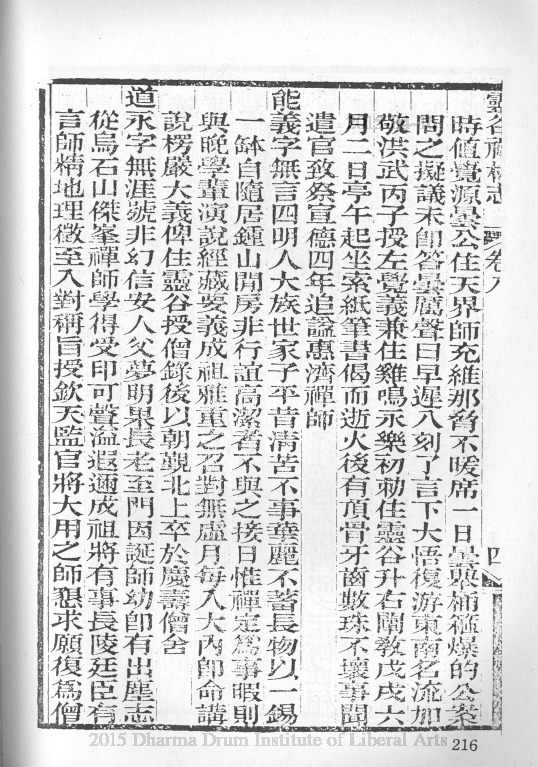 靈谷禪林志 卷八 四
時值覺源曇公住天界師充維那脅不暖席一日曇舉桶箍爆的公案
問之擬議未即答曇厲聲曰早遲八刻了言下大悟復游東南名流加
敬洪武丙子授左覺義兼住雞鳴永樂初勑住靈谷升右闡教戊戌六
月二日亭午起坐索紙筆書偈而逝火後有頂骨牙齒數珠不壞事聞
遣官致祭宣德四年追謚惠濟禪師
能義字無言四明人大族世家子平昔清苦不事華麗不蓄長物以一錫
一缽自隨居鍾山閒房非行誼高潔者不與之接日惟禪定爲事暇則
與晚學輩演說經藏要義成祖雅重之召對無虛月每入大內即命講
說楞嚴大義俾住靈谷授僧錄後以朝覲北上卒於慶壽僧舍
道永字無涯號非幻信安人父夢明果長老至門因誕師幼即有出塵志
從烏石山傑峯禪師學得受印可聲溢遐邇成祖將有事長陵廷臣有
言師精地理徵至入對稱旨授欽天監官將大用之師懇求願復爲僧
2015 Dharma Drum Institute of Liberal Arts 216